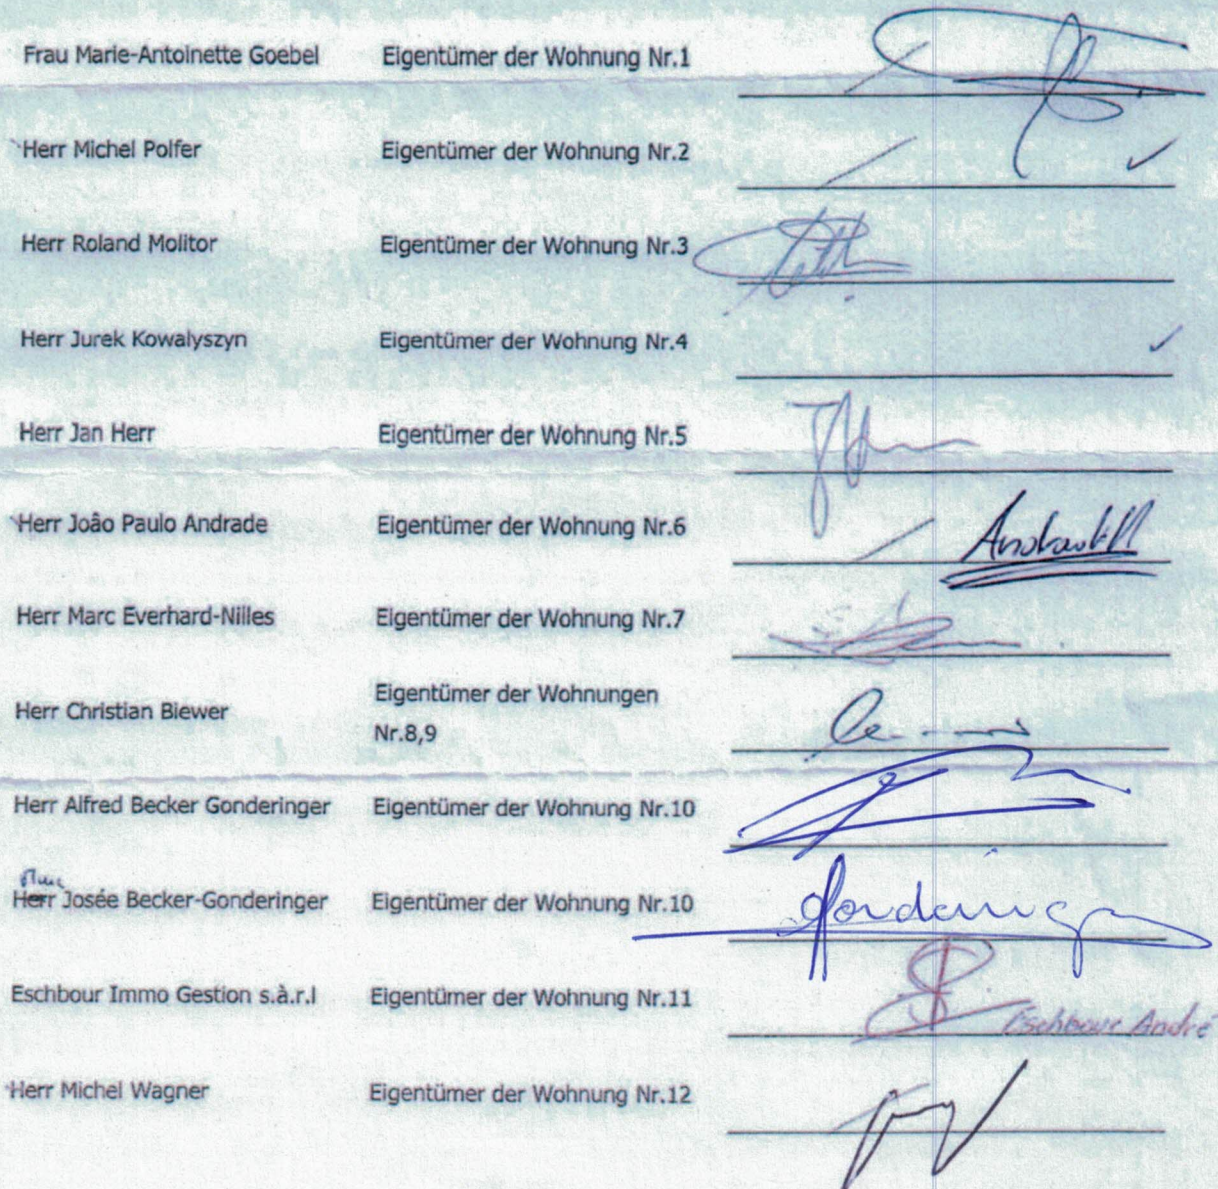 Frau Marie-Antoinette Goebel Eigentümer der Wohnung Nr.1
Herr Michel Polfer Eigentümer der Wohnung Nr.2
Herr Roland Molitor Eigentümer der Wohnung Nr.3
Herr Jurek Kowalyszyn Eigentümer der Wohnung Nr.4
Herr Jan Herr Eigentümer der Wohnung Nr.5
Herr Joâo Paulo Andrade Eigentümer der Wohnung Nr.6
Herr Marc Everhard-Nilles Eigentümer der Wohnung Nr.7
Herr Christian Biewer Eigentümer der Wohnungen
Nr.8,9
Herr Alfred Becker Gonderinger Eigentümer der Wohnung Nr.10
Herr Josée Becker-Gonderinger Eigentümer der Wohnung Nr.10
Eschbour Immo Gestion s.à.r.l Eigentümer der Wohnung Nr.11 Eschbour André
Herr Michel Wagner Eigentümer der Wohnung Nr.12